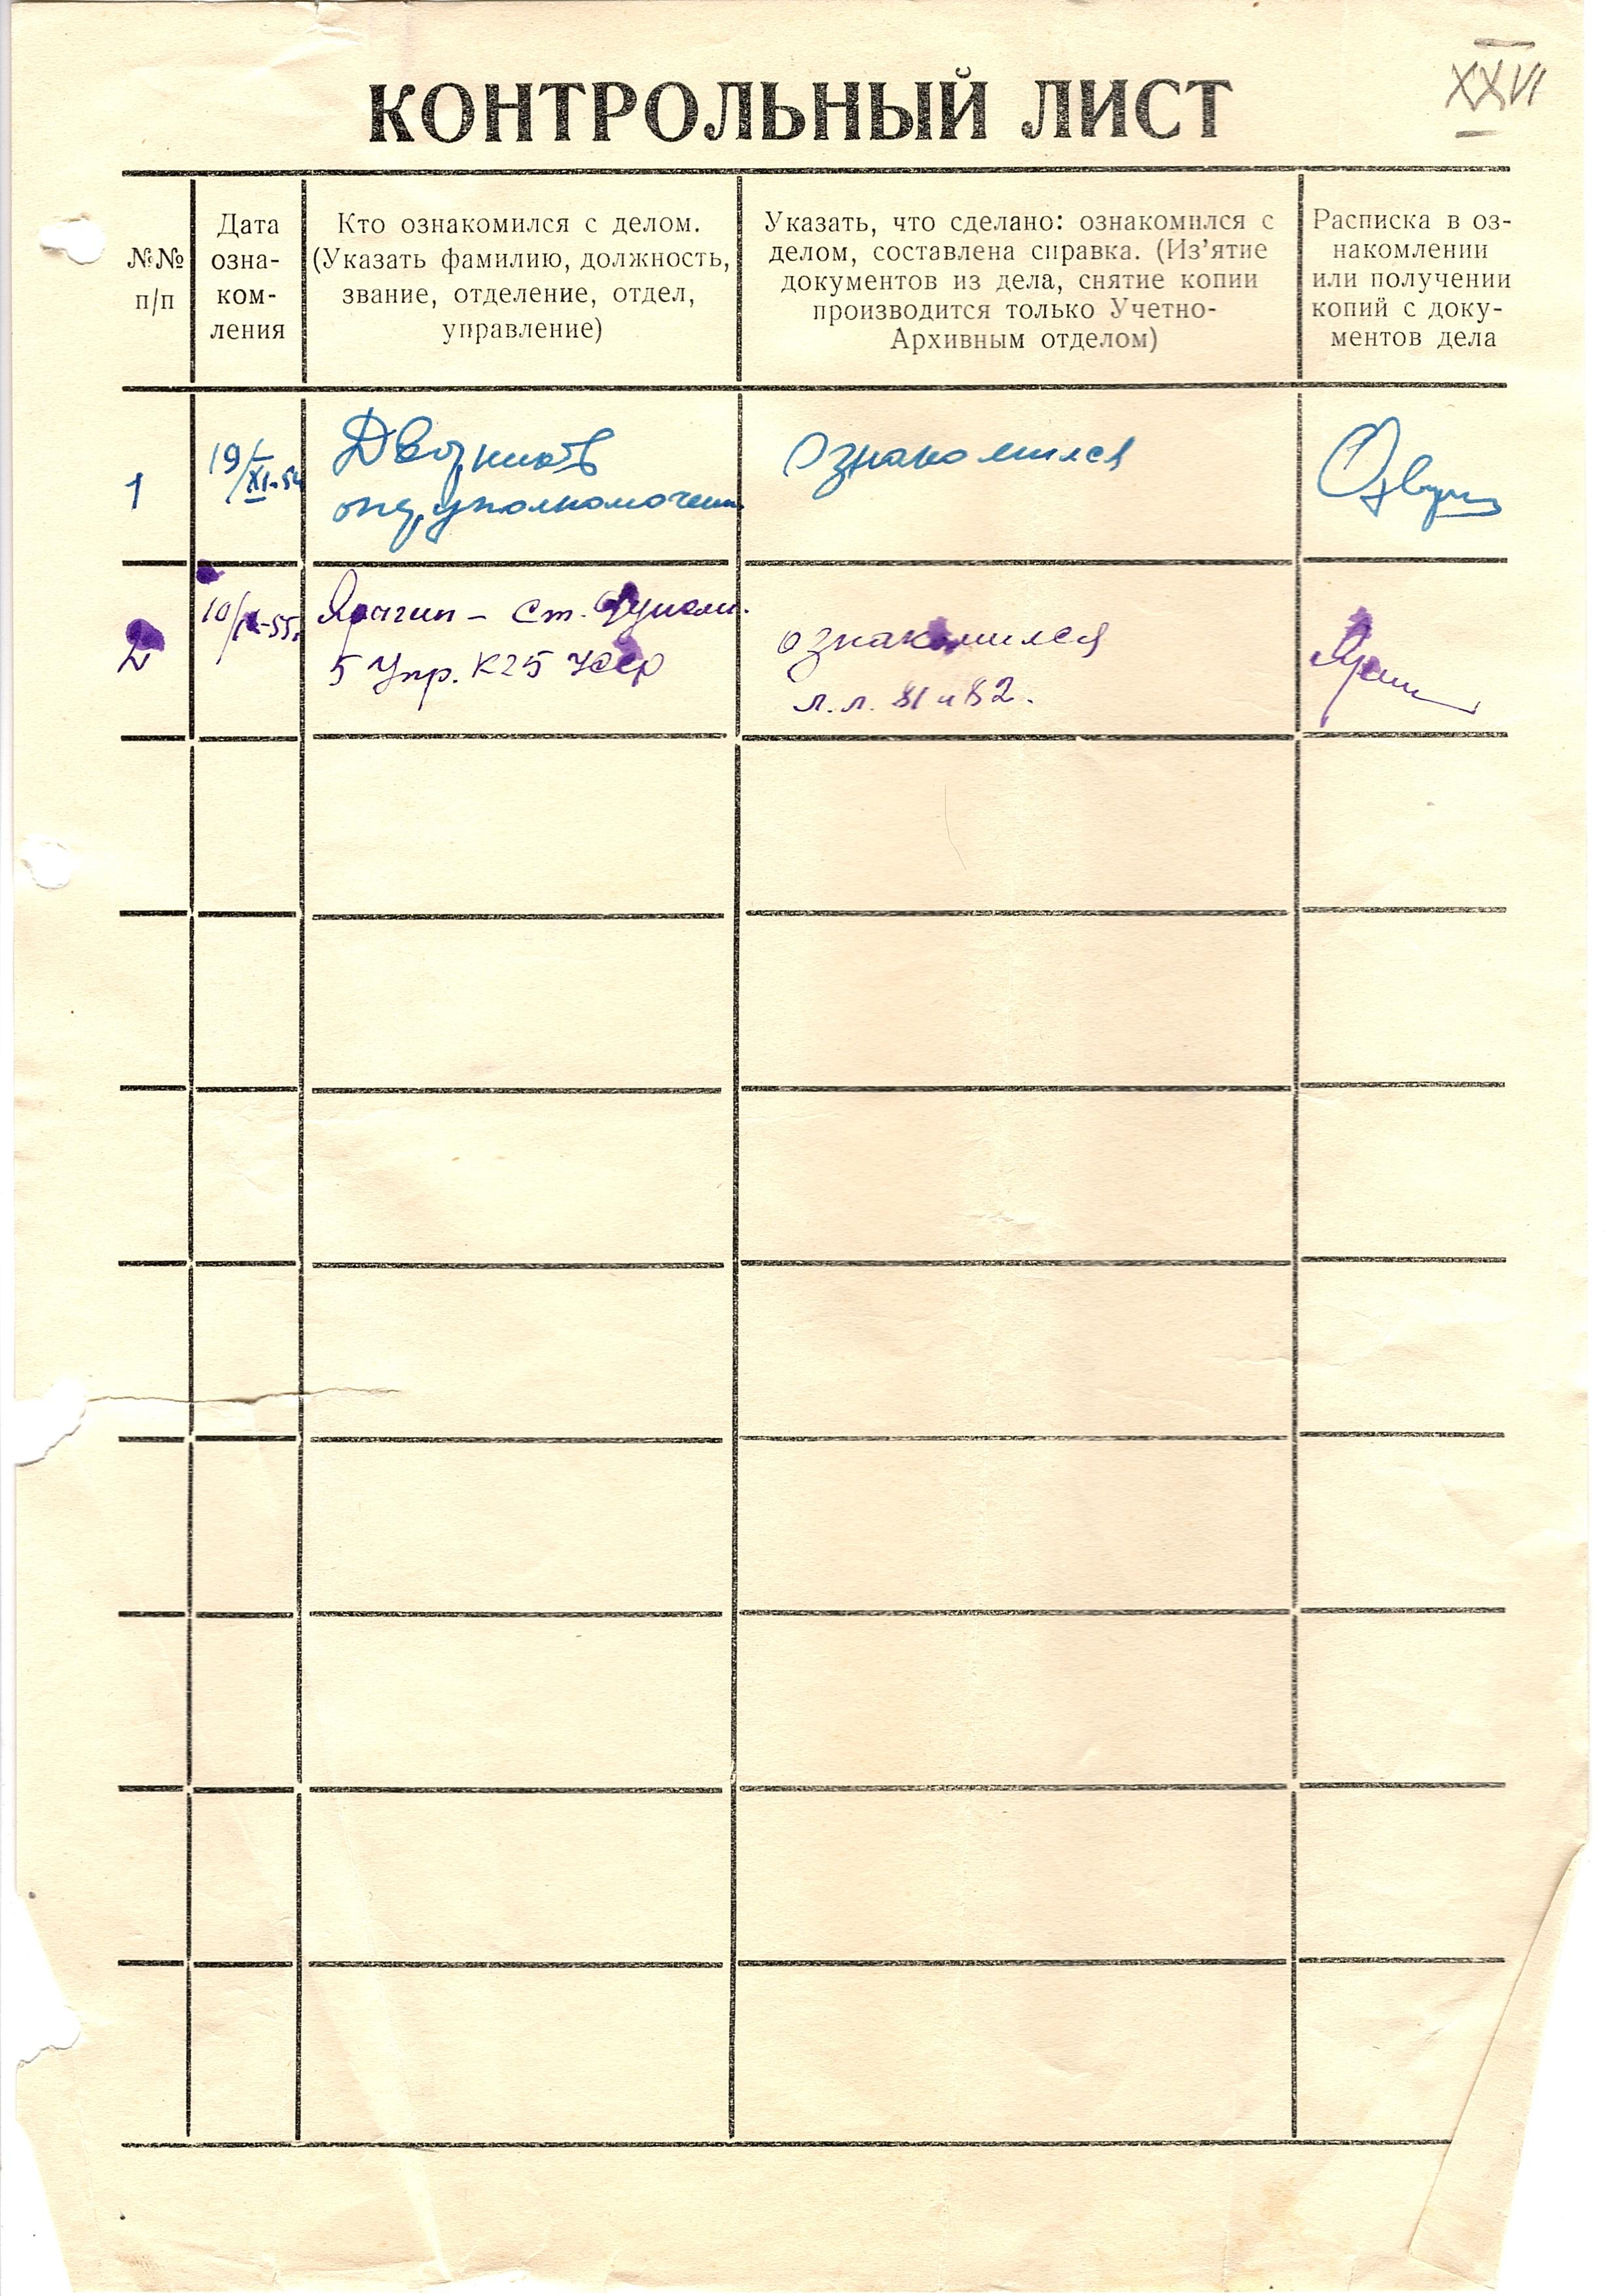 XXVI
КОНТРОЛЬНЫЙ ЛИСТ
№№
п/п
Дата
озна-
ком-
ления
Кто ознакомился с делом.
(Указать фамилию, должность,
звание, отделение, отдел,
управление)
Указать, что сделано: ознакомился с
делом, составлена справка. (Из’ятие
документов из дела, снятие копии
производится только Учетно-
Архивным отделом)
Расписка в оз-
накомлении
или получении
копий с доку-
ментов дела
1
19/XI-54
ознакомился
2
10/IX-55
ст.
5 Упр. КГБ УССР
ознакомился
л.л. 81 и 82.